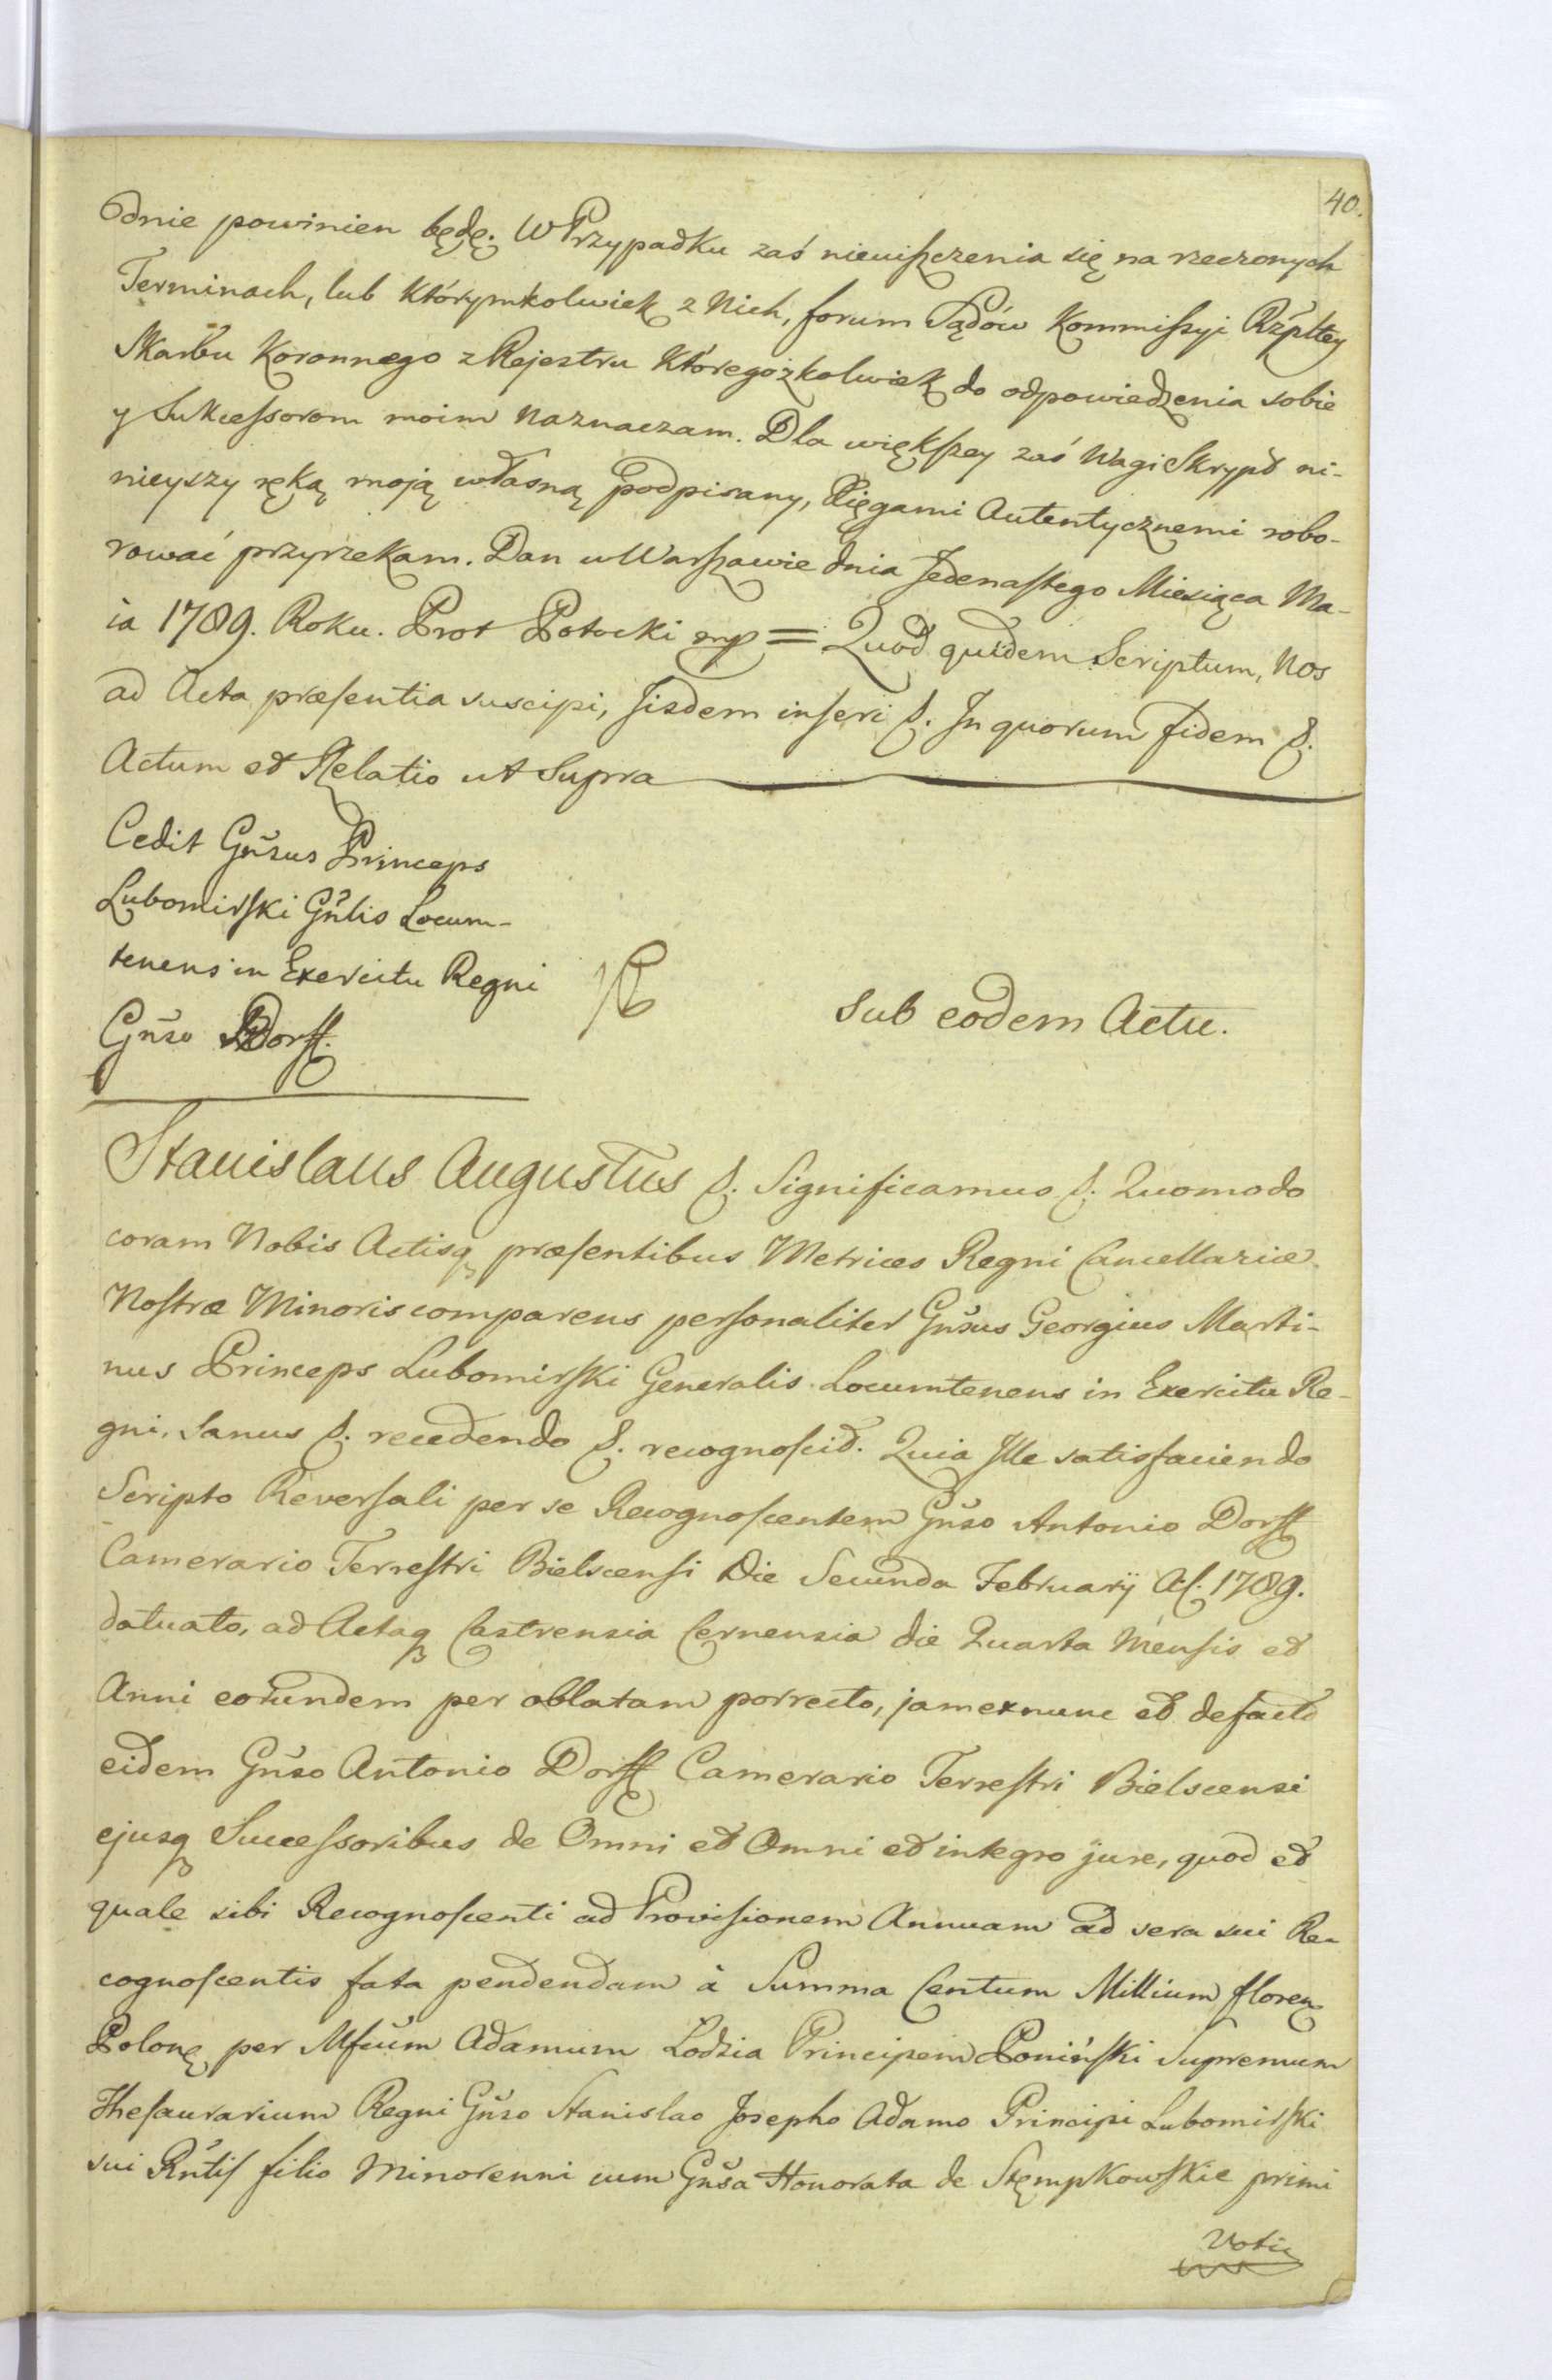 40.
Odnie powinien będę. W Przypadku zaś nieuiszczenia się na rzeczonych
Terminach, lub którymkolwiek z Nich, forum Sądów Kommissyi Rzpltey
Skarbu Koronnego z Rejestru któregożkolwiek do odpowiedzenia sobie
y Sukcessorom moim naznaczam. Dla większey zaś Wagi Skrypt ni-
nieyszy ręką moją własną podpisany, Xięgami Autentycznemi robo-
rować przyrzekam. Dan w Warszawie dnia Jedenastego Miesiąca Ma-
ia 1789. Roku. Prot Potocki mp = Quod quidem Scriptum, Nos
ad Acta præsentia suscipi, Iisdem inseri &. In quorum fidem &.
Actum et Relatio ut Supra
Cedit Gnsus Princeps
Lubomirski Gnlis Locum-
tenens in Exercitu Regni
Gnso Dorff.
Sub eodem Actu.
Stanislaus Augustus &. Significamus &. Quomodo
coram Nobis Actisq præsentibus Metrices Regni Cancellariæ
Nostræ Minoris comparens personaliter Gnsus Georgius Marti-
nus Princeps Lubomirski Generalis Locumtenens in Exercitu Re-
gni, Sanus &. recedendo &. recognoscit. Quia Ille satisfaciendo
Scripto Reversali per se Recognoscentem Gnso Antonio Dorff
Camerario Terrestri Bielscensi Die Secunda February A&. 1789.
datuato, ad Actaq Castrensia Cernensia die Quarta Mensis et
Anni eorundem per oblatam porrecto, jam ex nunc et de facto
eidem Gnso Antonio Dorff Camerario Terrestri Bielscensi
ejusq Successoribus de Omni et Omni et integro jure, quod et
quale sibi Recognoscenti ad Provisionem Annuam ad sera sui Re-
cognoscentis fata pendendam à Summa Centum Millium floren
Polon per Mfcum Adamum Lodzia Principem Poniński Supremum
Thesaurarium Regni Gnso Stanislao Josepho Adamo Principi Lubomirski
sui Rntis filio Minorenni cum Gnsa Honorata de Stempkowskie primi
Voti